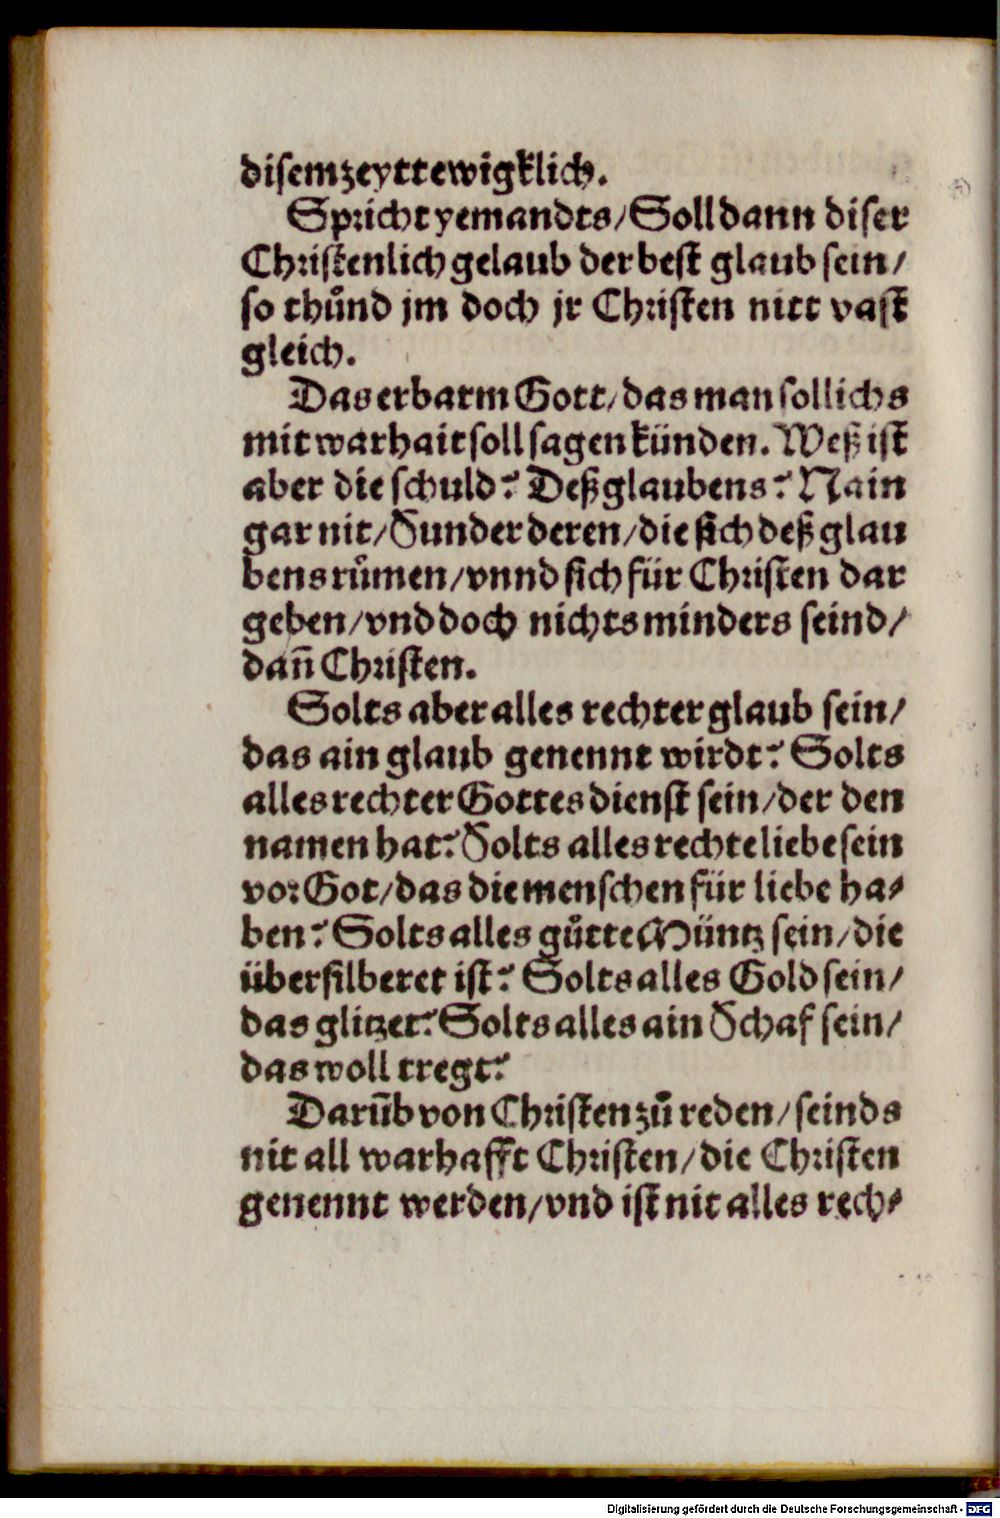 disem zeytt ewigklich.
Spricht yemandts/ Soll dann diser
Christenlich gelaub der best glaub sein/
so thůnd jm doch jr Christen nitt vast
gleich.
Das erbarm Gott/ das man sollichs
mit warhait soll sagen künden. Weß ist
aber die schuld? Deß glaubens? Nain
gar nit/ Sunder deren/ die sich deß glau
bens růmen/ vnnd sich für Christen dar
geben/ vnd doch nichts minders seind/
dañ Christen.
Solts aber alles rechter glaub sein/
das ain glaub genennt wirdt? Solts
alles rechter Gottes dienst sein/ der den
namen hat? Solts alles rechte liebe sein
vor Got/ das die menschen für liebe ha-
ben? Solts alles gůtte Müntz sein/ die
übersilberet ist? Solts alles Gold sein/
das glitzet? Solts alles ain Schaf sein/
das woll tregt?
Darũb von Christen zů reden/ seinds
nit all warhafft Christen/ die Christen
genennt werden/ vnd ist nit alles rech-
Digitalisierung gefördert durch die Deutsche Forschungsgemeinschaft - DFG